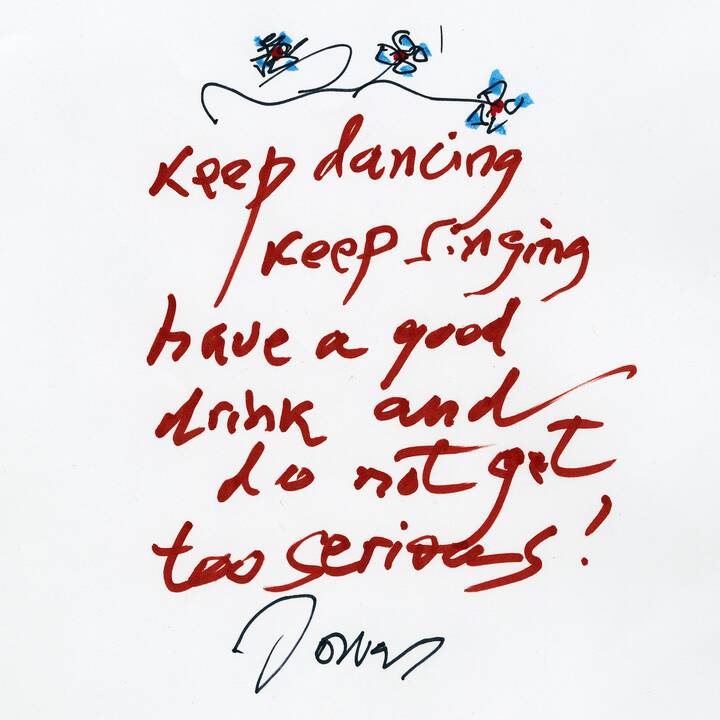 keep dancing
keep singing
have a good
drink and
do not get
too serious!
Jonas